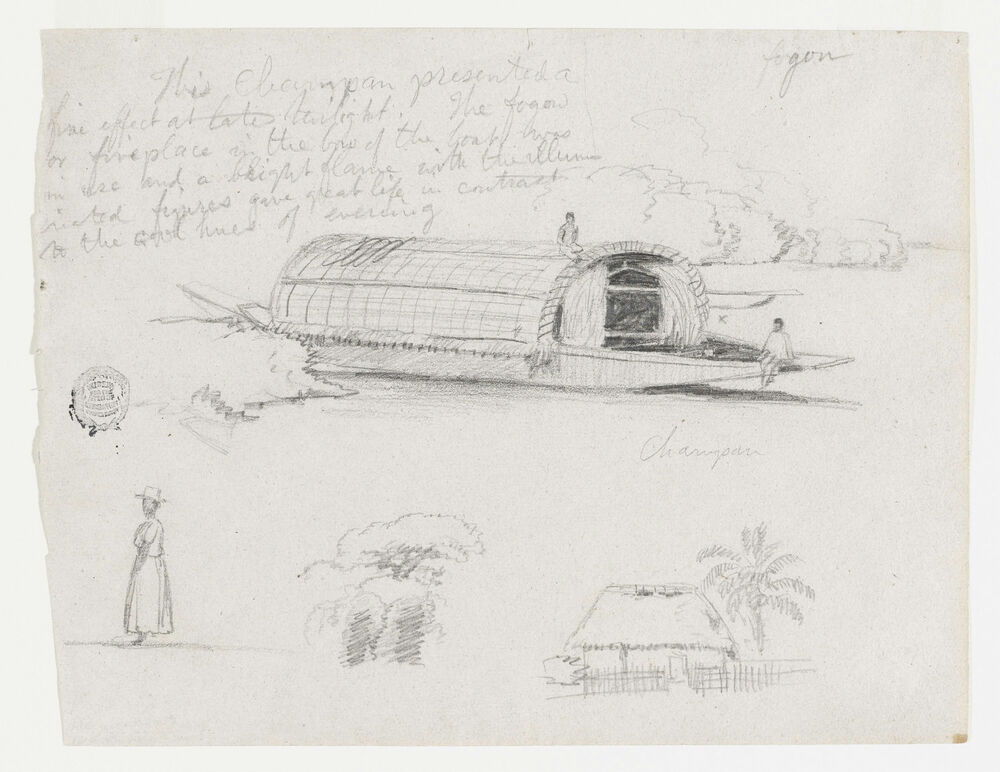 fogon
This Champan presented a
fine effect at late twilight. The fogon
or fireplace in the bow of the boat was
in use and a bright flame with the illumi
nated figures gave great life in contrast
to the cool hues of evening
x
Champan